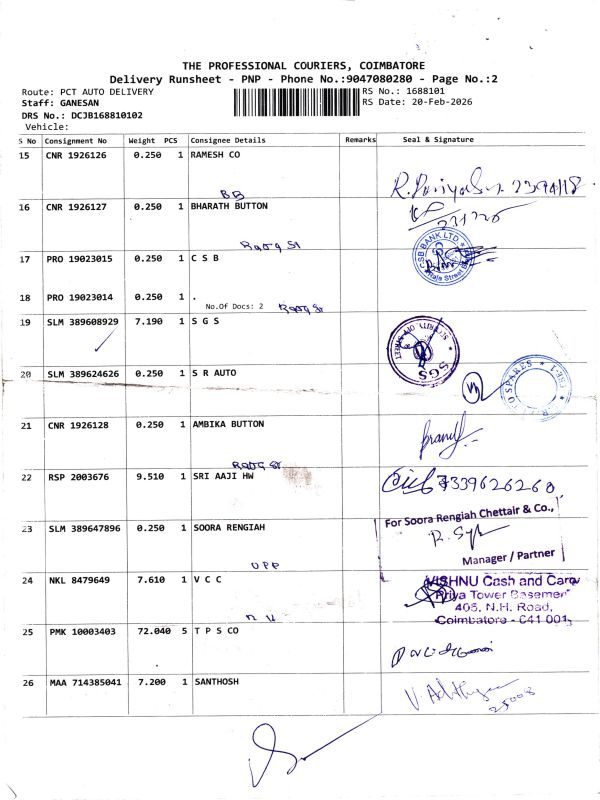 THE PROFESSIONAL COURIERS, COIMBATORE
Delivery Runsheet - PNP - Phone No.:9047080280 - Page No.:2
Route: PCT AUTO DELIVERY
RS No.: 1688101
Staff: GANESAN
RS Date: 20-Feb-2026
DRS No.: DCJB168810102
Vehicle:
S No Consignment No Weight PCS Consignee Details Remarks Seal & Signature
15 CNR 1926126 0.250 1 RAMESH CO
BB
16 CNR 1926127 0.250 1 BHARATH BUTTON
17 PRO 19023015 0.250 1 C S B
CSB BANK LTD.
18 PRO 19023014 0.250 1 .
No.Of Docs: 2
19 SLM 389608929 7.190 1 S G S
SGS
20 SLM 389624626 0.250 1 S R AUTO
SPARES
21 CNR 1926128 0.250 1 AMBIKA BUTTON
22 RSP 2003676 9.510 1 SRI AAJI HW
For Soora Rengiah Chettair & Co.,
23 SLM 389647896 0.250 1 SOORA RENGIAH
Manager / Partner
OPP
24 NKL 8479649 7.610 1 V C C
VISHNU Cash and Carry
Priya Tower Basement
405, N.H. Road,
Coimbatore - 641 001.
25 PMK 10003403 72.040 5 T P S CO
26 MAA 714385041 7.200 1 SANTHOSH